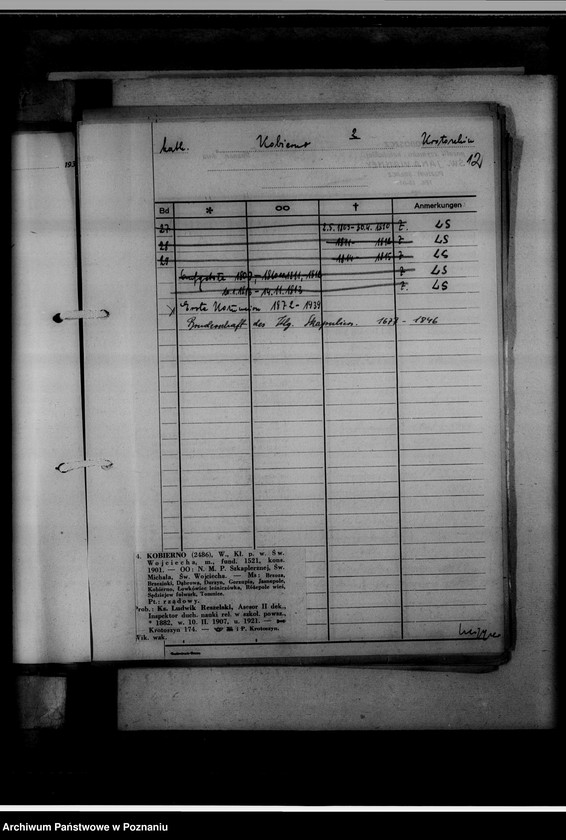 kath. Kobierno 2 Krotoschin
12
193
Bd * OO † Anmerkungen
27 2.5.1803-30.4.1810 Z. LS
28 1811- 1814 Z LS
29 1814 - 1815 Z LS
1807, 1810-1811, 1814 Z LS
14.11.1813 Z. LS
X Erste Kommunion 1872-1939
Bruderschaft des Hlg. Skapuliers. 1677 - 1846
4. KOBIERNO (2486), W., Kl. p. w. Św.
Wojciecha, m., fund. 1521, kons.
1901. — OO: N. M. P. Szkaplerznej, Św.
Michała, Św. Wojciecha. — Ms: Brzoza,
Brzezinki, Dąbrowa, Durzyn, Gorzupia, Jasnepole,
Kobierno, Ławkówiec leśniczówka, Różopole wieś,
Sędziejew folwark, Tomnice.
Pt.: rządowy.
Prob.: Ks. Ludwik Reszelski, Asesor II dek.,
Inspektor duch. nauki rel. w szkoł. powsz.,
* 1882, w. 10. II. 1907, u. 1921. —
Krotoszyn 174. — i P. Krotoszyn.
Wik. wak.
Archiwum Państwowe w Poznaniu